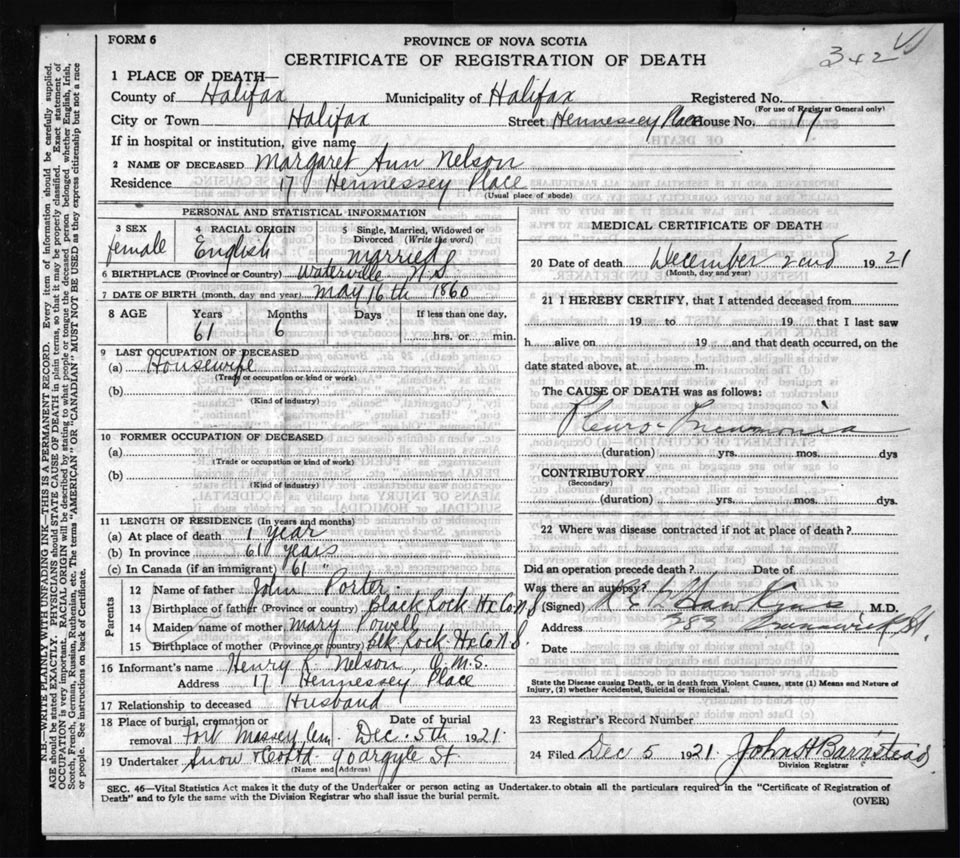 FORM 6
PROVINCE OF NOVA SCOTIA
CERTIFICATE OF REGISTRATION OF DEATH
342
1 PLACE OF DEATH—
County of Halifax Municipality of Halifax Registered No.
(For use of Registrar General only)
City or Town Halifax Street Hennessey Place House No. 17
If in hospital or institution, give name
2 NAME OF DECEASED Margaret Ann Nelson
Residence 17 Hennessey Place
(Usual place of abode)
PERSONAL AND STATISTICAL INFORMATION
3 SEX 4 RACIAL ORIGIN 5 Single, Married, Widowed or
Divorced (Write the word)
female English married
6 BIRTHPLACE (Province or Country) Waterville N.S.
7 DATE OF BIRTH (month, day and year) May 16th 1860
8 AGE Years Months Days If less than one day,
61 6 hrs. or min.
9 LAST OCCUPATION OF DECEASED
(a) Housewife
(Trade or occupation or kind or work)
(b)
(Kind of industry)
10 FORMER OCCUPATION OF DECEASED
(a)
(Trade or occupation or kind of work)
(b)
(Kind of industry)
11 LENGTH OF RESIDENCE (In years and months)
(a) At place of death 1 year
(b) In province 61 years
(c) In Canada (if an immigrant) 61 "
Parents
12 Name of father John Porter
13 Birthplace of father (Province or country) Black Rock Hx Co N.S
14 Maiden name of mother Mary Powell
15 Birthplace of mother (Province or country) Blk Rock Hx Co N.S.
16 Informant's name Henry L. Nelson
Address 17 Hennessey Place
17 Relationship to deceased Husband
18 Place of burial, cremation or Date of burial
removal Fort Massey Cem. Dec. 5th 1921
19 Undertaker Snow & Co Ltd 90 Argyle St
(Name and Address)
MEDICAL CERTIFICATE OF DEATH
20 Date of death December 2nd 1921
(Month, day and year)
21 I HEREBY CERTIFY, that I attended deceased from
19 to 19 that I last saw
h alive on 19 and that death occurred, on the
date stated above, at m.
The CAUSE OF DEATH was as follows:
Pleuro-Pneumonia
(duration) yrs. mos. dys
CONTRIBUTORY
(Secondary)
(duration) yrs. mos. dys.
22 Where was disease contracted if not at place of death?
Did an operation precede death? Date of
Was there an autopsy?
(Signed) M.D.
Address 283 Brunswick St.
Date
State the Disease causing Death, or in death from Violent Causes, state (1) Means and Nature of
Injury, (2) whether Accidental, Suicidal or Homicidal.
23 Registrar's Record Number
24 Filed Dec 5 1921. John H Barnstead
Division Registrar
SEC. 46—Vital Statistics Act makes it the duty of the Undertaker or person acting as Undertaker to obtain all the particulars required in the "Certificate of Registration of
Death" and to fyle the same with the Division Registrar who shall issue the burial permit.
(OVER)
N.B.—WRITE PLAINLY WITH UNFADING INK—THIS IS A PERMANENT RECORD. Every item of information should be carefully supplied.
AGE should be stated EXACTLY. PHYSICIANS should STATE CAUSE OF DEATH in plain terms, so that it may be properly classified. Exact statement of
OCCUPATION is very important. RACIAL ORIGIN will be described by stating to what people or tongue the deceased person belonged whether English, Irish,
Scotch, French, German, Russian, Ruthenian, etc. The terms "AMERICAN" OR "CANADIAN" MUST NOT BE USED as they express citizenship but not a race
or people. See instructions on back of Certificate.